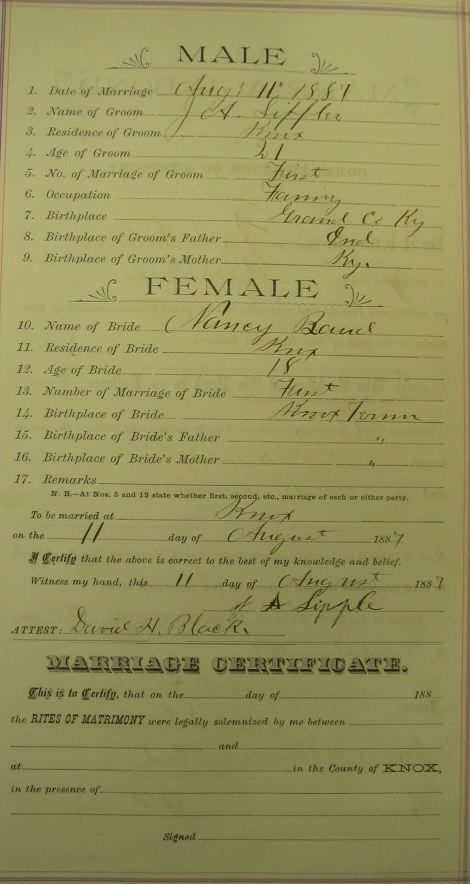 MALE
1. Date of Marriage Aug: 11" 1887
2. Name of Groom J A. Sipples
3. Residence of Groom Knox
4. Age of Groom 21
5. No. of Marriage of Groom First
6. Occupation
7. Birthplace Grand Co Ky
8. Birthplace of Groom's Father Ind
9. Birthplace of Groom's Mother Ky.
FEMALE
10. Name of Bride Nancy
11. Residence of Bride Knx
12. Age of Bride 18
13. Number of Marriage of Bride First
14. Birthplace of Bride Knox Tenn
15. Birthplace of Bride's Father "
16. Birthplace of Bride's Mother "
17. Remarks
N. B.—At Nos. 5 and 13 state whether first, second, etc., marriage of each or either party.
To be married at Knox
on the 11 day of August 1887
I Certify that the above is correct to the best of my knowledge and belief.
Witness my hand, this 11 day of August 1887
Sipple
ATTEST: David H. Black.
MARRIAGE CERTIFICATE.
This is to Certify, that on the day of 188
the RITES OF MATRIMONY were legally solemnized by me between
and
at in the County of KNOX,
in the presence of
Signed